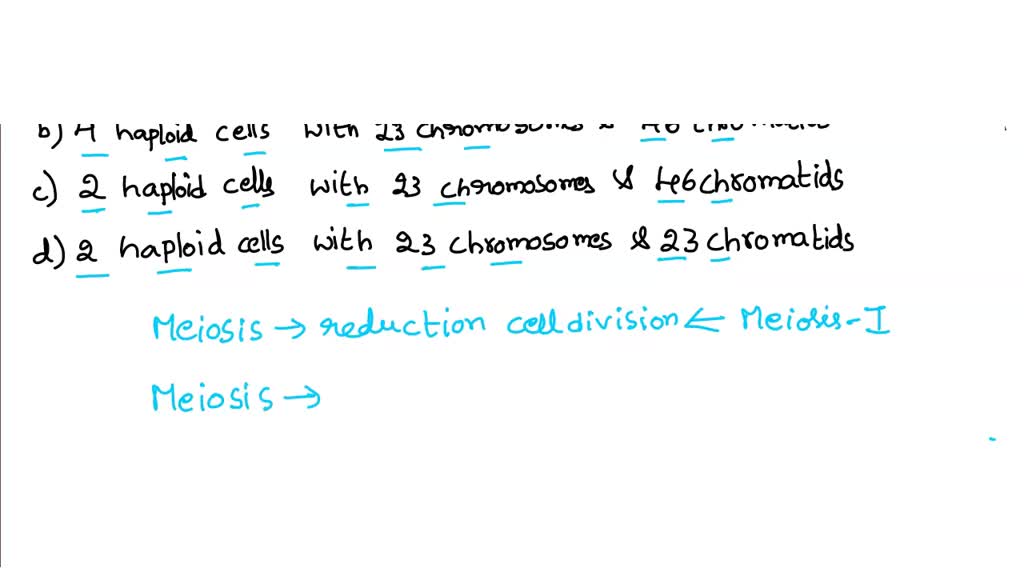 b) 4 haploid cells with 23 chromosomes & 46 chromatids
c) 2 haploid cells with 23 chromosomes & 46 chromatids
d) 2 haploid cells with 23 chromosomes & 23 chromatids
Meiosis → reduction cell division ← Meiosis-I
Meiosis →